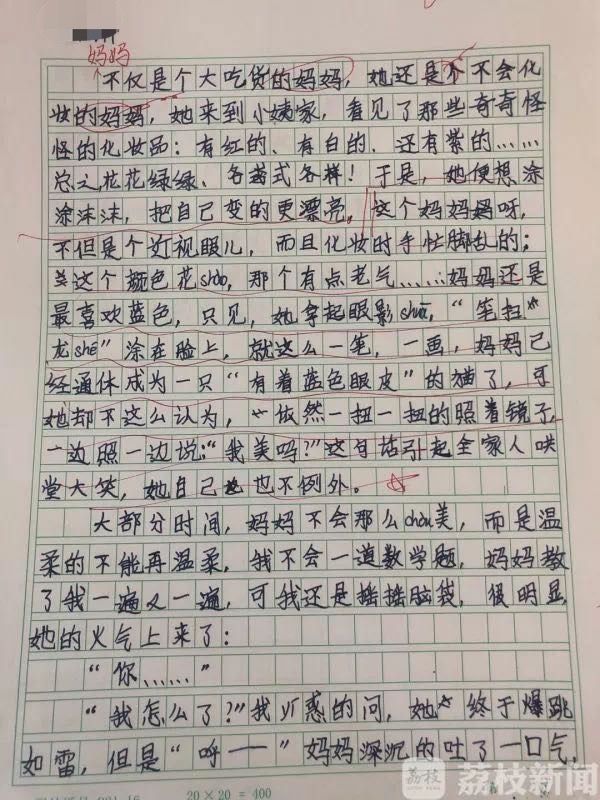 妈妈
不仅是个大吃货的妈妈,她还是个不会化
妆的妈妈,她来到小姨家,看见了那些奇奇怪
怪的化妆品:有红的、有白的、还有紫的……
总之花花绿绿、各式各样!于是,她便想涂
涂沫沫,把自己变的更漂亮,这个妈妈呀,
不但是个近视眼儿,而且化妆时手忙脚乱的;
这个颜色花shào,那个有点老气……妈妈还是
最喜欢蓝色,只见,她拿起眼影shuā,“笔扫
龙shé”涂在脸上,就这么一笔,一画,妈妈已
经通体成为一只“有着蓝色眼皮”的猫了,可
她却不这么认为,依然一扭一扭的照着镜子,
一边照一边说:“我美吗?”这句话引起全家人哄
堂大笑,她自己也不例外。
大部分时间,妈妈不会那么chòu美,而是温
柔的不能再温柔,我不会一道数学题,妈妈教
了我一遍又一遍,可我还是摇摇脑袋,很明显,
她的火气上来了:
“你……”
“我怎么了?”我疑惑的问,她终于爆跳
如雷,但是“呼——”妈妈深沉的吐了一口气,
20×20=400
荔枝 荔枝新闻